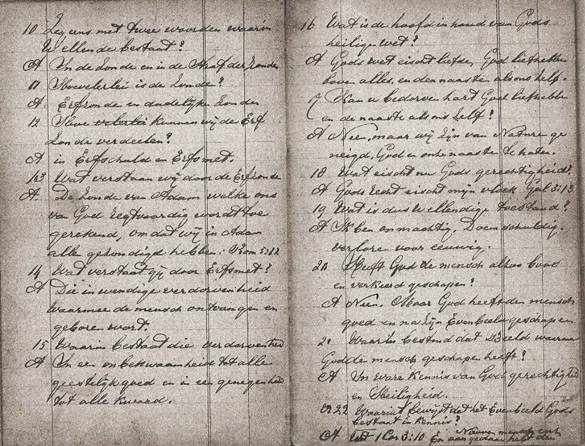 10 Zeg eens met twee woorden waarin
U ellende bestaat?
A In de Zonde en in de Straf der Zonden
11 Hoevelerlei is de Zonde?
A. Erfzonde en dadelijke Zonden
12 Hoe velerlei kennen wij de Erf
Zonde verdeelen?
A in Erfschuld en Erfsmet.
13 Wat verstaan wij door de Erfzonde
A. De Zonde van Adam welke ons
van God regtvaardig wordt toe
gerekend, omdat wij in Adam
alle gezondigd hebben. Rom 5:12
14 Wat verstaat gij door Erfsmet?
A Die inwendige verdorvenheid
waarmee de mensch ontvangen en
geboren word.
15 Waarin bestaat die verdorvenheid
A In een onbekwaamheid tot alle
geestelijk goed en in een genegenheid
tot alle kwaad.
16 Wat is de hoofd inhoud van Gods
heilige wet?
A Gods wet eischt liefde, God liefhebben
boven alles, en den naaste als ons zelf.
17 Kan u bedorven hart God liefhebben
en de naaste als ons zelf?
A Neen, maar wij zijn van Nature ge
neigd, God en onze naaste te haten.
18 Wat eischt nu Gods gerechtigheid?
A Gods recht eischt mijn vloek Gal 3:13
19 Wat is dus U ellendige toestand?
A Ik ben onmachtig, Doemschuldig,
verloren voor eeuwig.
20 Heeft God de mensch alzoo kwaad
en verkeerd geschapen?
A Neen. Maar God heeft den mensch
goed en na Zijn Evenbeeld geschapen
21 Waarin bestond dat Beeld waarna
God de mensch geschapen heeft?
A In ware Kennis van God gerechtigheid
en Heiligheid.
22 Waaruit bewijst dat het Evenbeeld Gods
bestaat in Kennis?
A Col 3:10 En aangedaan heeft den
Nieuwen mensch